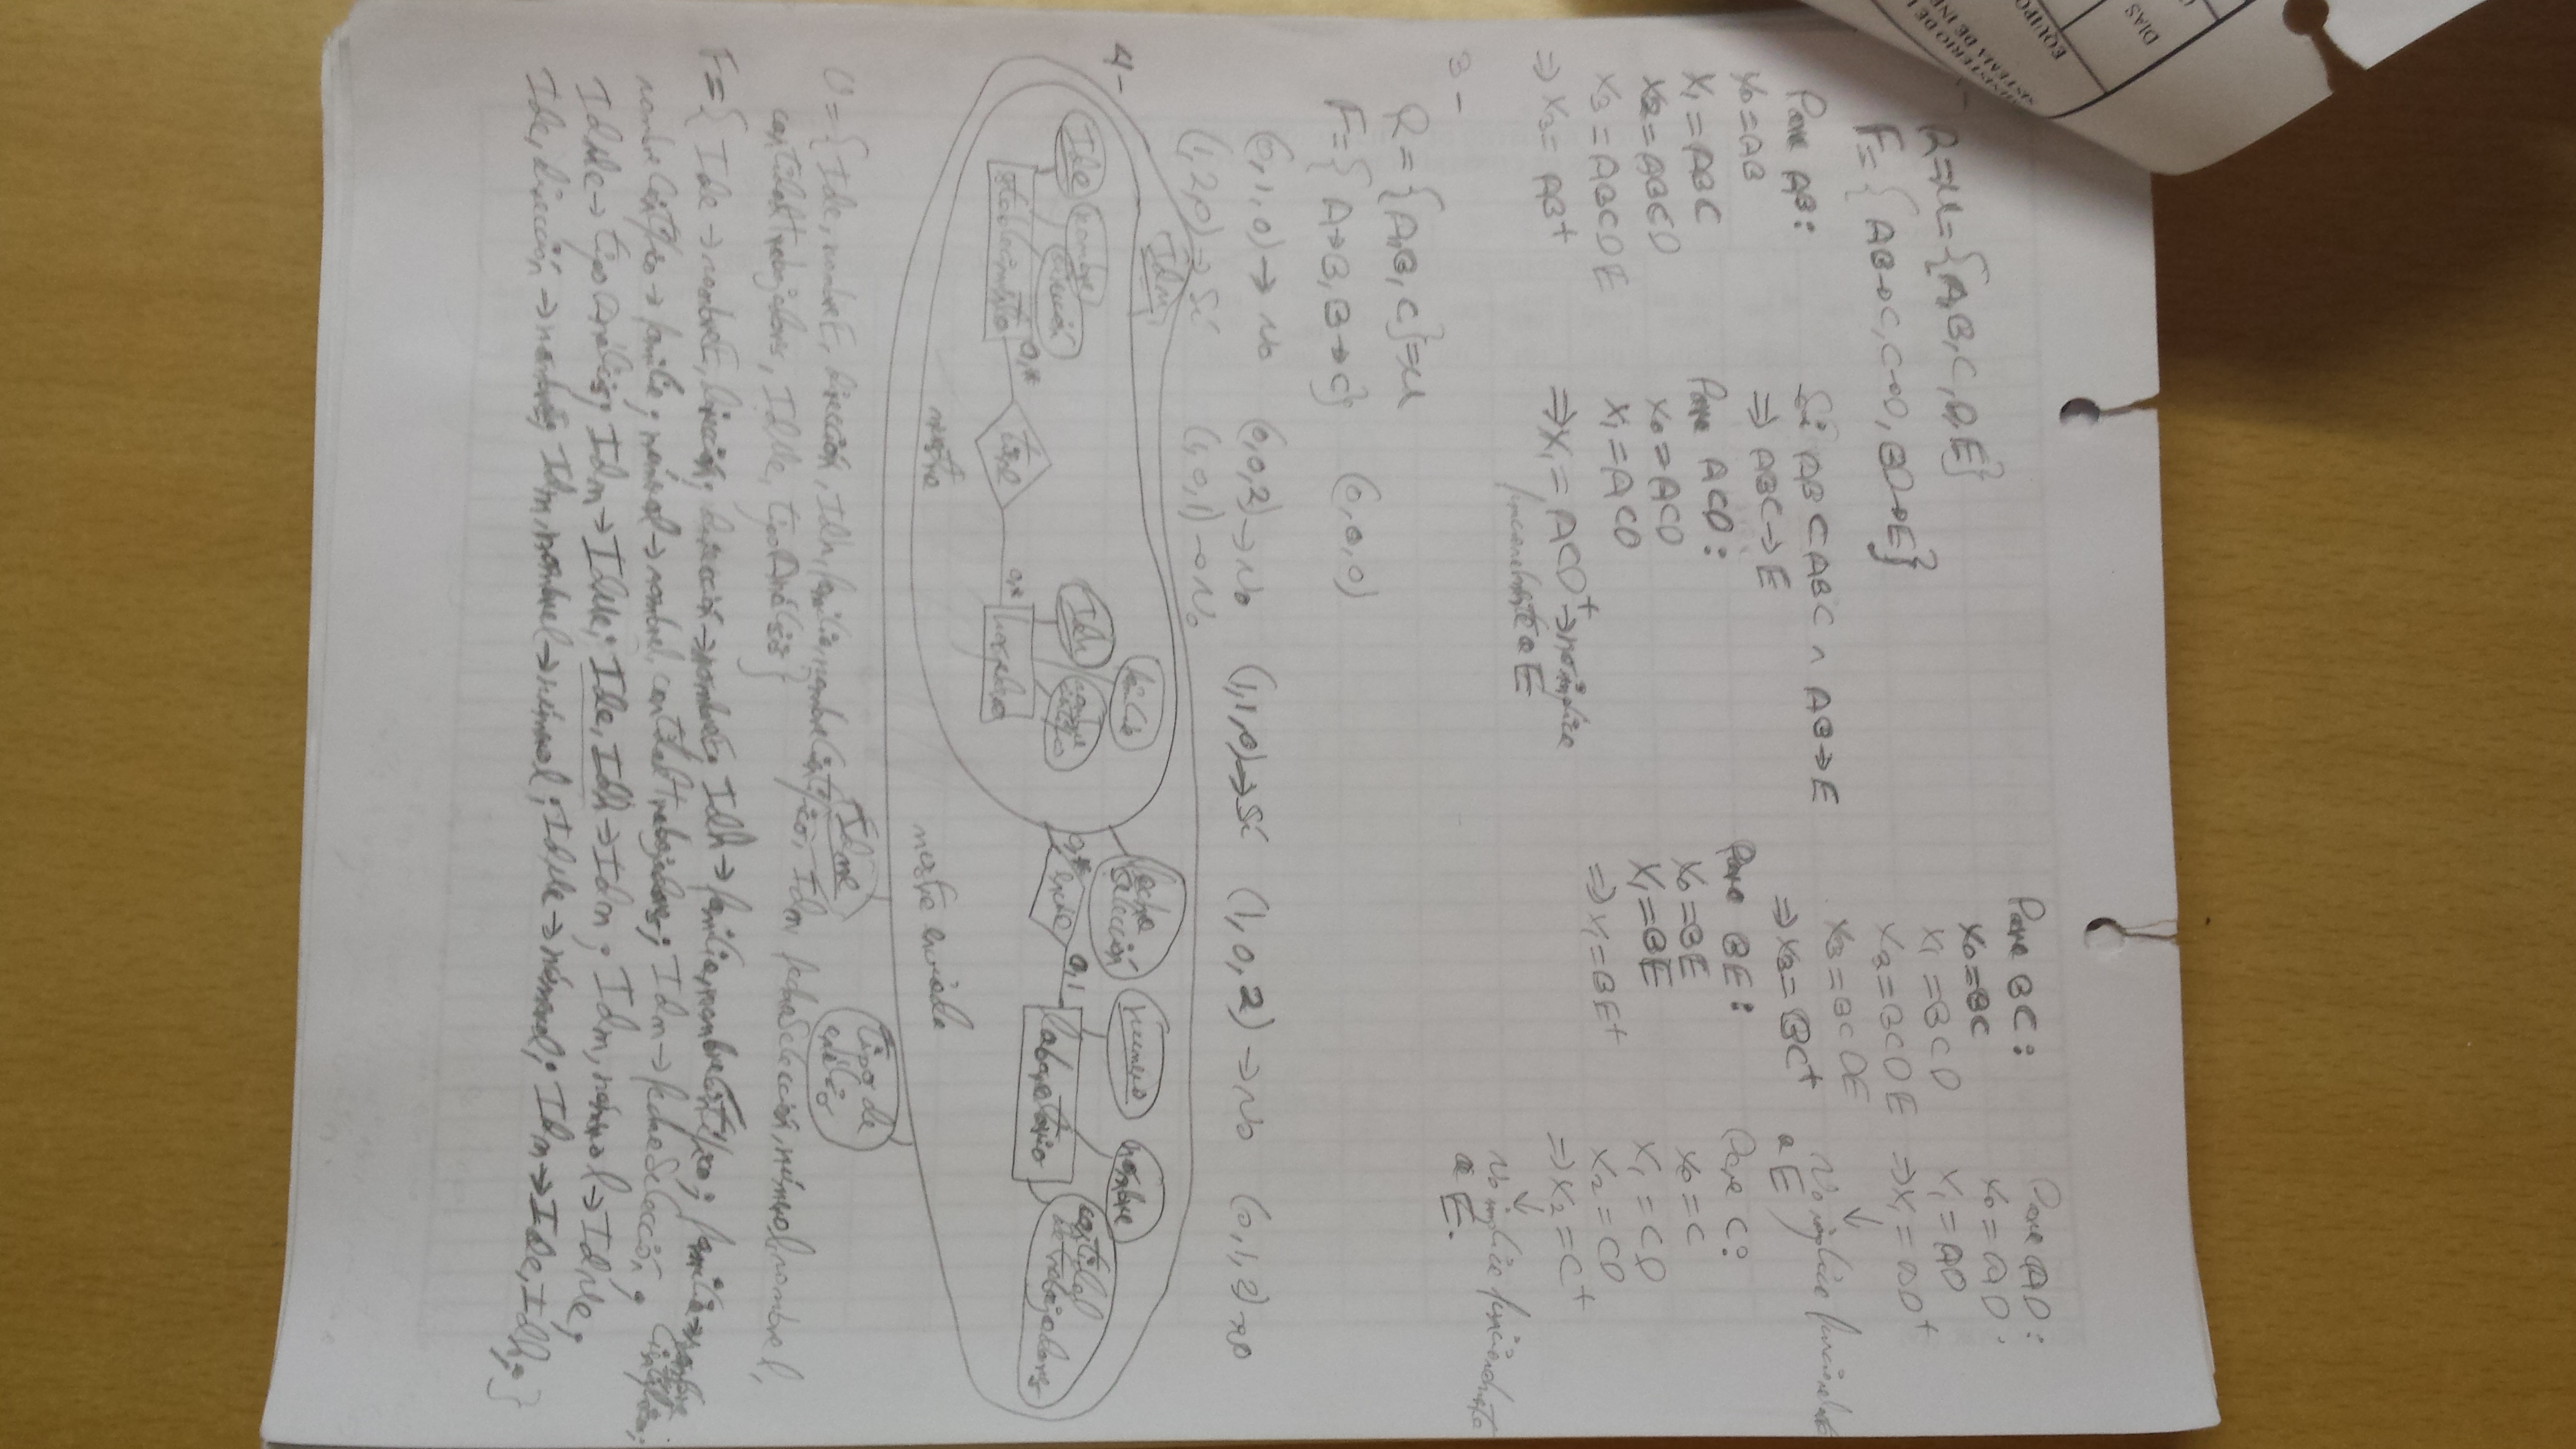 DIAS
EQUIPO
SISTEMA DE INF
MINISTERIO DE L
R=U={A,B,C,D,E}
F={AB→C,C→D,BD→E}
Para AB:
X0=AB
X1=ABC
X2=ABCD
X3=ABCDE
⇒X3=AB+
Si ABCABC ∧ AB→E
⇒ ABC→E
Para ACD:
X0=ACD
X1=ACD
⇒X1=ACD+→no implica
funcionalmente a E
Para BC:
X0=BC
X1=BCD
X2=BCDE
X3=BCDE
⇒X3=BC+
Para BE:
X0=BE
X1=BE
⇒X1=BE+
Para AD:
X0=AD
X1=AD
⇒X1=AD+
↓
No implica funcionalmente
a E
Para C:
X0=C
X1=CD
X2=CD
⇒X2=C+
↓
No implica funcionalmente
a E.
3-
R={A,B,C}=U
F={A→B,B→C} (0,0,0)
(0,1,0)→No (0,0,2)→No (1,1,0)→Sí (1,0,2)→No (0,1,2)→no
(1,2,0)→Sí (1,0,1)→No
4-
Idm
Ide nombre
dirección
establecimiento 0,* tiene 0,*
Idh familia
nombre científico
muestra
fecha
selección
0,* envio 0,1
número nombre
laboratorio
cantidad
de trabajadores
muestra enviada
Idme
tipo de
análisis
U={Ide, nombreE, dirección, Idh, familia, nombreCientífico, Idm, fechaSelección, númerol, nombrel,
cantidadtrabajadores, IdMe, tipoAnálisis}
F={Ide→nombreE, dirección; dirección→nombreE; Idh→familia, nombreCientífico; familia→nombre
Científico;
nombreCientífico→familia; númerol→nombrel, cantidadTrabajadores; Idm→fechaSelección;
IdMe→tipoAnálisis; Idm→IdMe; Ide, Idh→Idm; Idm, númerol→IdMe;
Ide, dirección→nombre; Idm, nombrel→númerol; IdMe→númerol; Idm→Ide, Idh;}